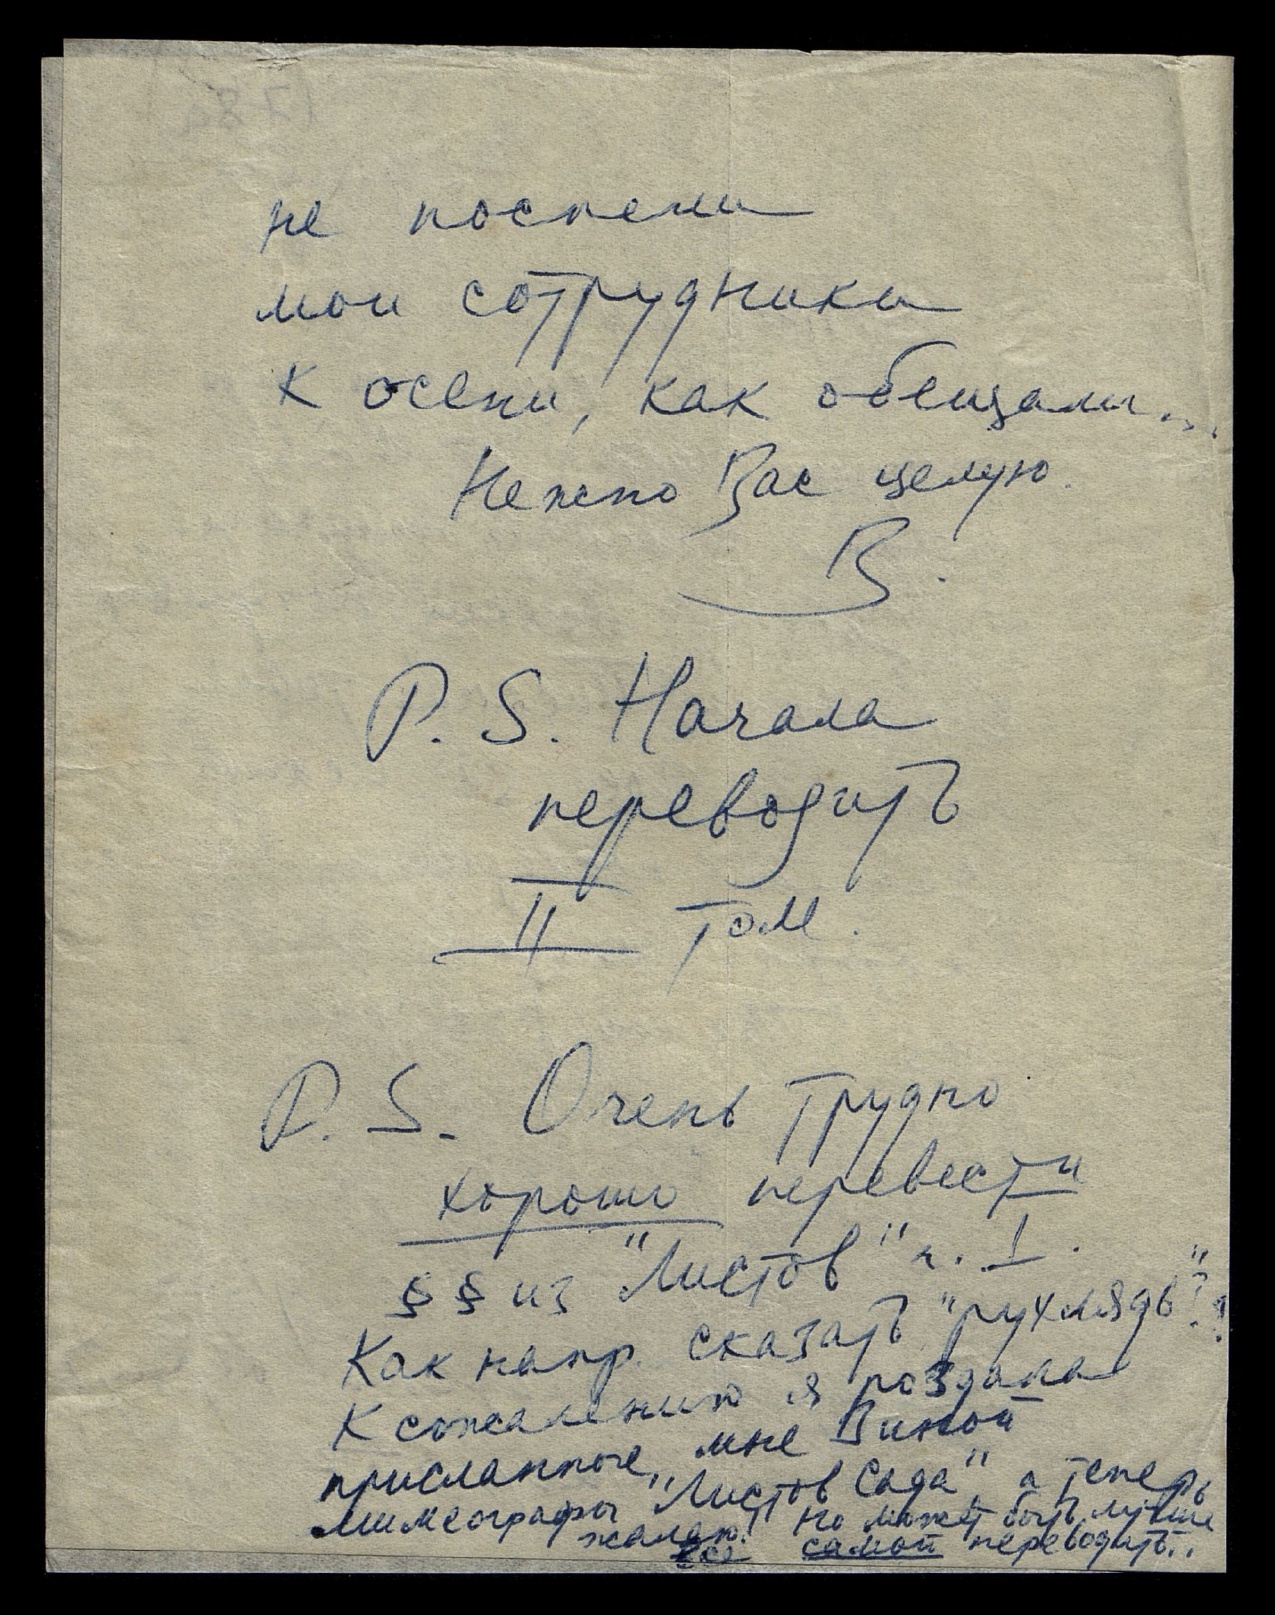 не поспели
мои сотрудники
к осени, как обещали...
Нежно Вас целую.
В.
P. S. Начала
переводить
II том.
P. S. Очень трудно
хорошо перевести
§ § из "Листов" ч. I.
Как напр. сказать "рухлядь"??
К сожалению я роздала
присланные мне Зиной
мимеографы "Листов Сада", а теперь
жалею! Но может быть лучше
все самой переводить..